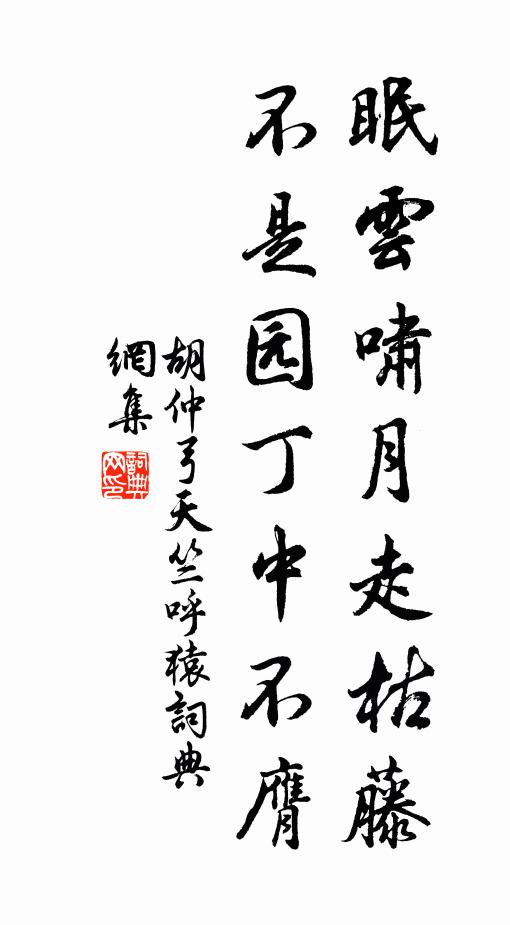 眠雲嘯月走枯藤
不是园丁中不膺
胡仲弓天竺呼猿詞典
網集
詞典網印